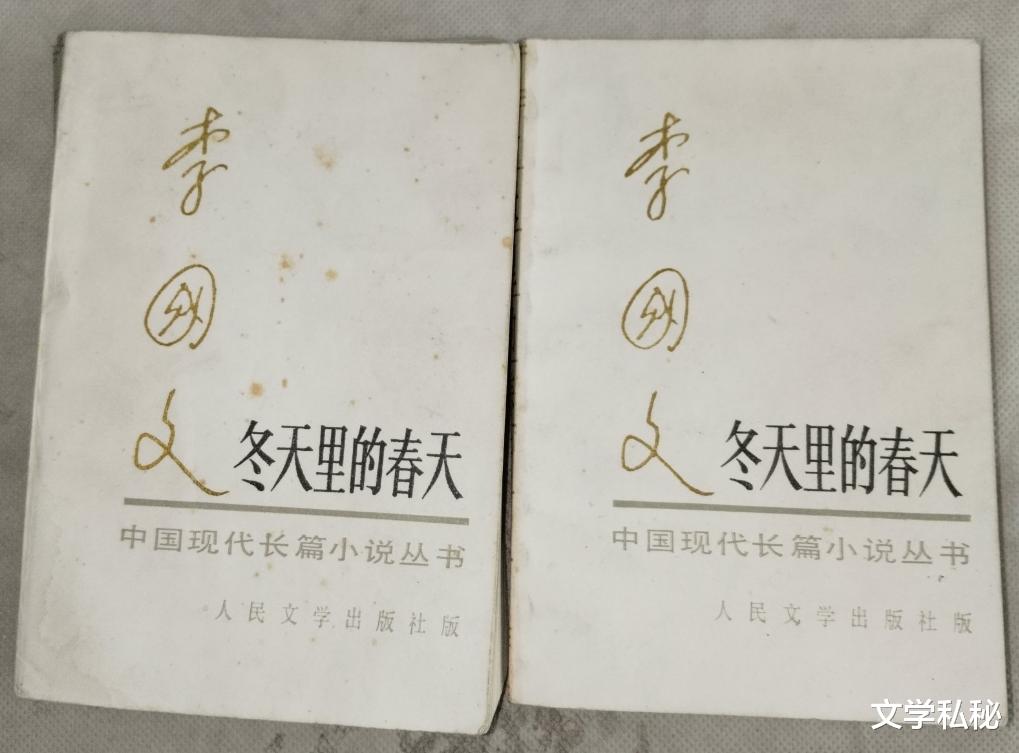 李国文
冬天里的春天
中国现代长篇小说丛书
人民文学出版社版
李国文
冬天里的春天
中国现代长篇小说丛书
人民文学出版社版
文学私秘